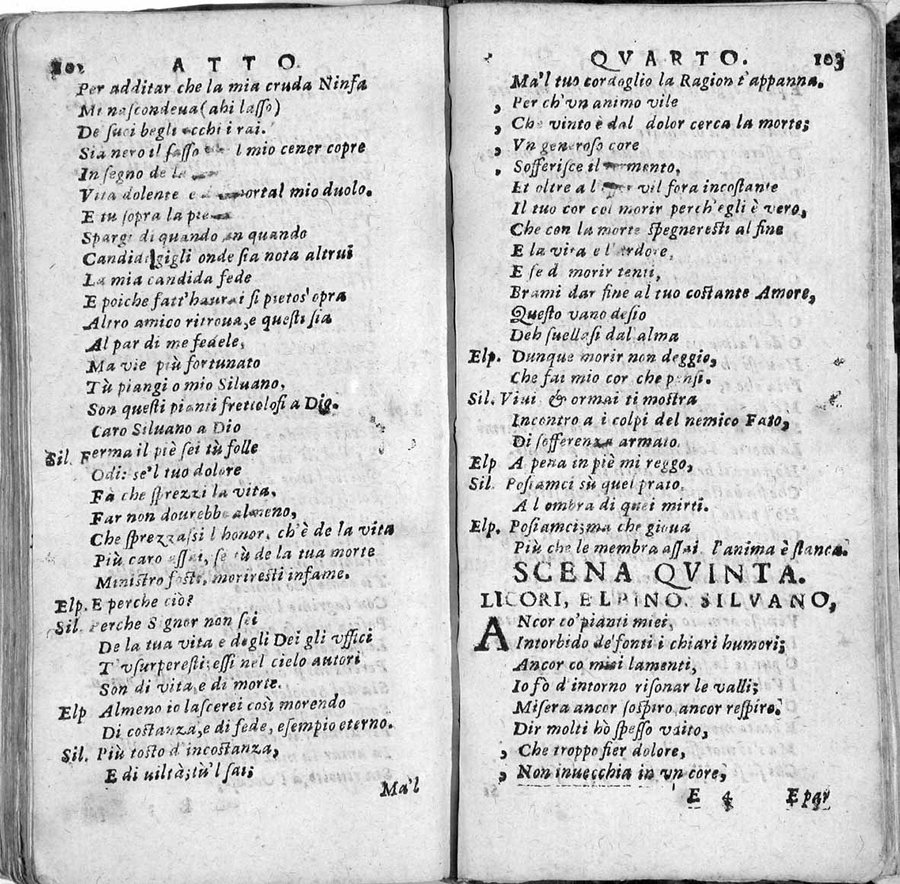 102
ATTO
Per additar che la mia cruda Ninfa
Mi nascondeua (ahi lasso)
De' suoi begli occhi i rai.
Sia nero il sasso l mio cener copre
In segno de la
Vita dolente e mortal mio duolo.
E tu sopra la
Spargi di quando in quando
Candidi gigli onde sia nota altrui
La mia candida fede
E poiche fatt'haurai sì pietos'opra
Altro amico ritroua, e questi sia
Al par di me fedele,
Ma vie più fortunato
Tù piangi o mio Siluano,
Son questi pianti frettolosi a Dio.
Caro Siluano a Dio
Sil. Ferma il piè sei tù folle
Odi: se'l tuo dolore
Fà che sprezzi la vita,
Far non dourebbe almeno,
Che sprezzassi l'honor, ch'è de la vita
Più caro assai, se tù de la tua morte
Ministro fosti, moriresti infame.
Elp. E perche ciò?
Sil. Perche Signor non sei
De la tua vita e degli Dei gli vffici
T'vsurperesti; essi nel cielo autori
Son di vita, e di morte.
Elp Almeno io lascerei così morendo
Di costanza, e di fede, esempio eterno.
Sil. Più tosto d'incostanza,
E di viltà; tù'l sai;
Ma'l
QVARTO.
103
Ma'l tuo cordoglio la Ragion t'appanna.
, Per ch'vn animo vile
, Che vinto è dal dolor cerca la morte;
, Vn generoso core
, Sofferisce il tormento,
Et oltre a l vil fora incostante
Il tuo cor col morir perch'egli è vero,
Che con la morte spegneresti al fine
E la vita e l'ardore,
E se di morir tenti,
Brami dar fine al tuo costante Amore,
Questo vano desio
Deh suellasi dal alma
Elp. Dunque morir non deggio,
Che fai mio cor che pensi.
Sil. Viui & ormai ti mostra
Incontro a i colpi del nemico Fato,
Di sofferenza armato.
Elp A pena in piè mi reggo,
Sil. Posiamci sù quel prato,
A l ombra di quei mirti.
Elp. Posiamci; ma che gioua
Più che le membra assai l'anima è stanca.
SCENA QVINTA.
LICORI, ELPINO. SILVANO,
ANcor co' pianti miei,
Intorbido de' fonti i chiari humori;
Ancor co miei lamenti,
Io fò d'intorno risonar le valli;
Misera ancor sospiro, ancor respiro.
Dir molti hò spesso vdito,
, Che troppo fier dolore,
, Non inuecchia in vn core,
E 4
E par